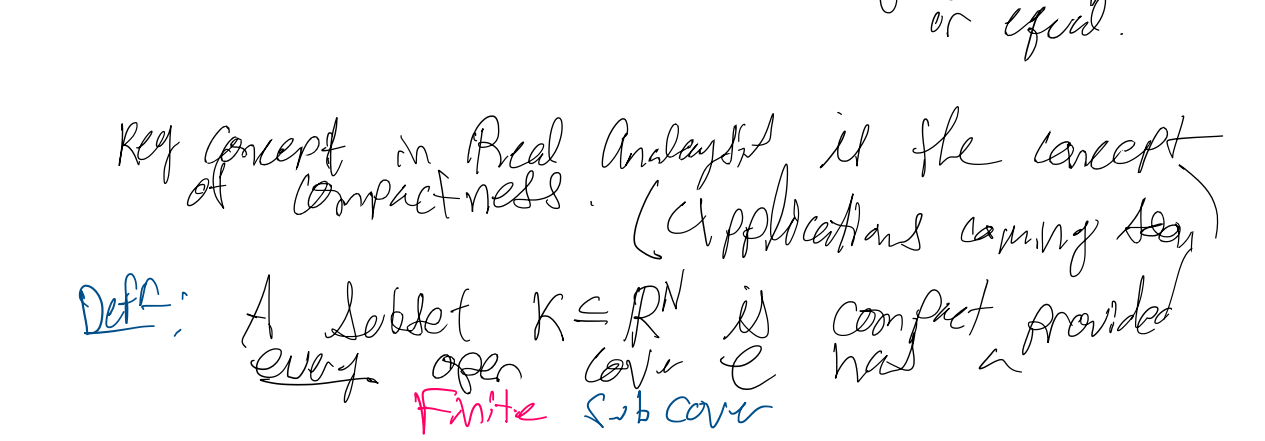 or equal.
Key concept in Real Analysis is the concept
of compactness. (Applications coming soon)
Defn: A subset K ⊆ R^N is compact provided
every open cover C has a
Finite Subcover